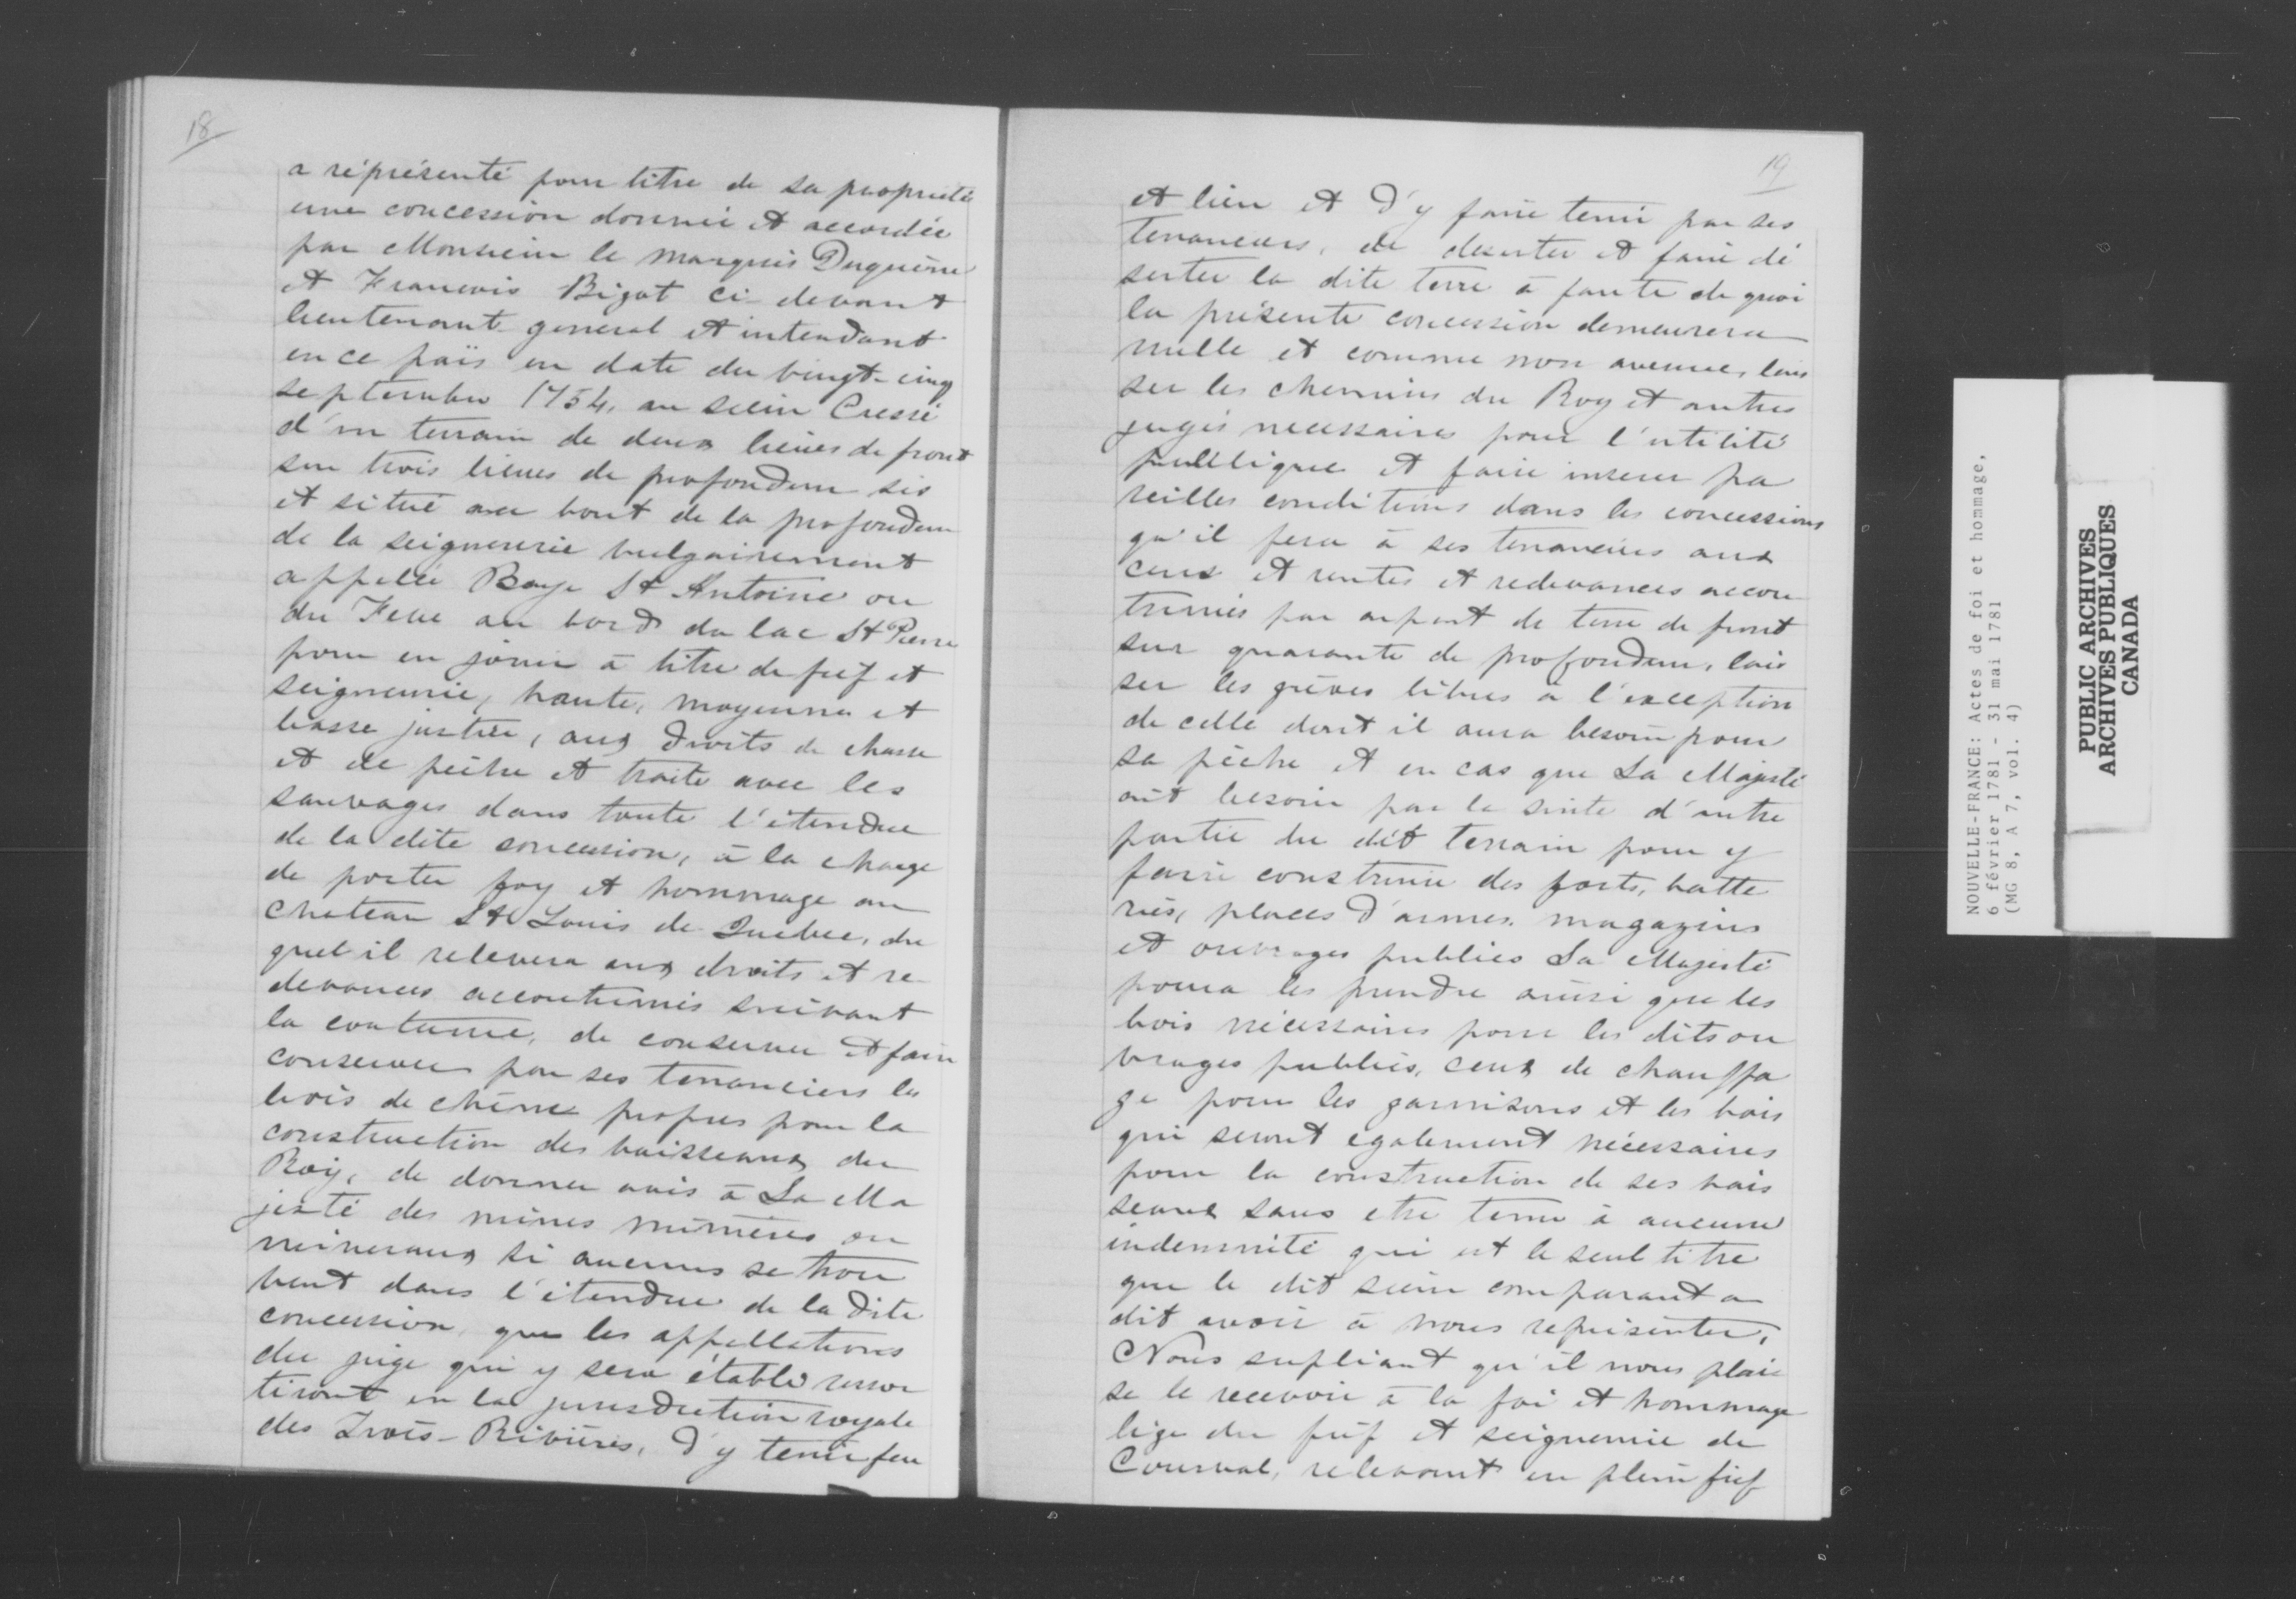 18
a réprésenté pour titre de sa propriété
une concession donnée et accordée
par Monsieur le marquis Duquêne
et Francois Bigot ci-devant
lieutenant general et intendant
en ce païs en date du vingt-cinq
septembre 1754, au sieur Cressé
d'un terrain de deux lieues de front
sur trois lieues de profondeur sis
et situé au bout de la profondeur
de la seigneurie vulgairement
appellée Baye St Antoine ou
du Febe au bord du lac St Pierre
pour en jouir à titre de fief et
seigneurie, haute, moyenne et
basse justice, aux droits de chasse
et de pêche et traite avec les
sauvages dans toute l'étendue
de la dite concession, à la charge
de porter foy et hommage au
chateau St Louis de Québec, du
quel il relevera aux droits et re-
devances accoutumés suivant
la coutume, de conserver et faire
conserver par ses tenanciers les
bois de chêne propres pour la
construction des vaisseaux du
Roy, de donner avis à Sa Ma
jesté des mines minières ou
mineraux si aucuns se trou
vent dans l'étendue de la dite
concession, que les appellations
du juge qui y sera établi ressor
tiront en la jurisdiction royale
des Trois-Rivières, d'y tenir feu
19
et lieu et d'y faire tenir par ses
tenanciers, de deserter et faire dé
serter la dite terre à faute de quoi
la présente concession demeurera
nulle et comme non avenue, lais
ser les chemins du Roy et autres
jugés necessaires pour l'utilité
publique et faire inserer pa
reilles conditions dans les concessions
qu'il fera à ses tenanciers aux
cens et rentes et redevances accou
tumés par arpent de terre de front
sur quarante de profondeur, lais
ser les grèves libres à l'exception
de celle dont il aura besoin pour
sa pêche et en cas que Sa Majesté
ait besoin par la suite d'autre
partie du dit terrain pour y
faire construire des forts, batte
ries, places d'armes, magazins
et ouvrages publics Sa Majesté
poura les prendre ainsi que les
bois nécessaires pour les dits ou
vrages publics, ceux de chauffa
ge pour les garnisons et les bois
qui seront egalement nécessaires
pour la construction de ses vais
seaux sans etre tenu à aucune
indemnité qui est le seul titre
que le dit sieur comparant a
dit avoir à nous représenter,
Nous supliant qu'il nous plai
se le recevoir à la foi et hommage
lige du fief et seigneurie de
Courval, relevant en plein fief
NOUVELLE-FRANCE: Actes de foi et hommage,
6 février 1781 - 31 mai 1781
(MG 8, A 7, vol. 4)
PUBLIC ARCHIVES
ARCHIVES PUBLIQUES
CANADA